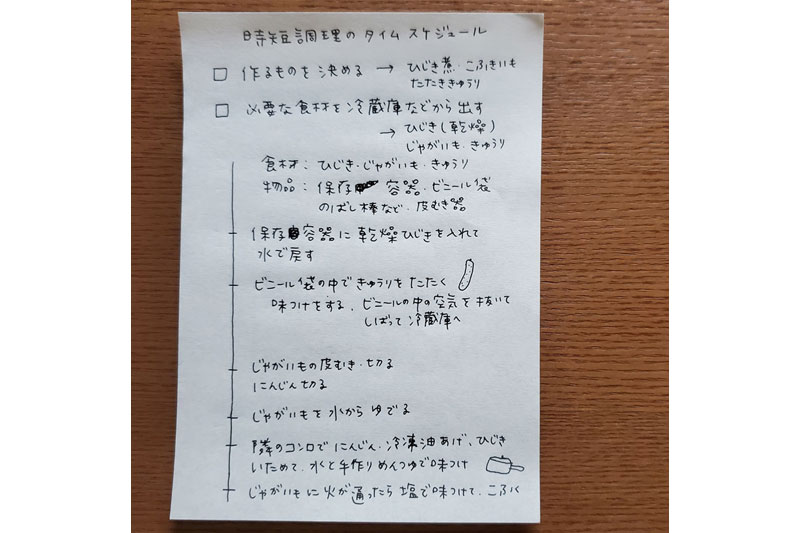 時短調理のタイムスケジュール
□ 作るものを決める → ひじき煮・こふきいも
たたききゅうり
□ 必要な食材を冷蔵庫などから出す
→ ひじき(乾燥)
じゃがいも・きゅうり
食材：ひじき・じゃがいも・きゅうり
物品：保存容器・ビニール袋
のばし棒など・皮むき器
保存容器に乾燥ひじきを入れて
水で戻す
ビニール袋の中できゅうりをたたく
味つけをする、ビニールの中の空気を抜いて
しばって冷蔵庫へ
じゃがいもの皮むき・切る
にんじん切る
じゃがいもを水からゆでる
隣のコンロでにんじん・冷凍油あげ、ひじき
いためて、水と手作りめんつゆで味つけ
じゃがいもに火が通ったら塩で味つけて、こふく